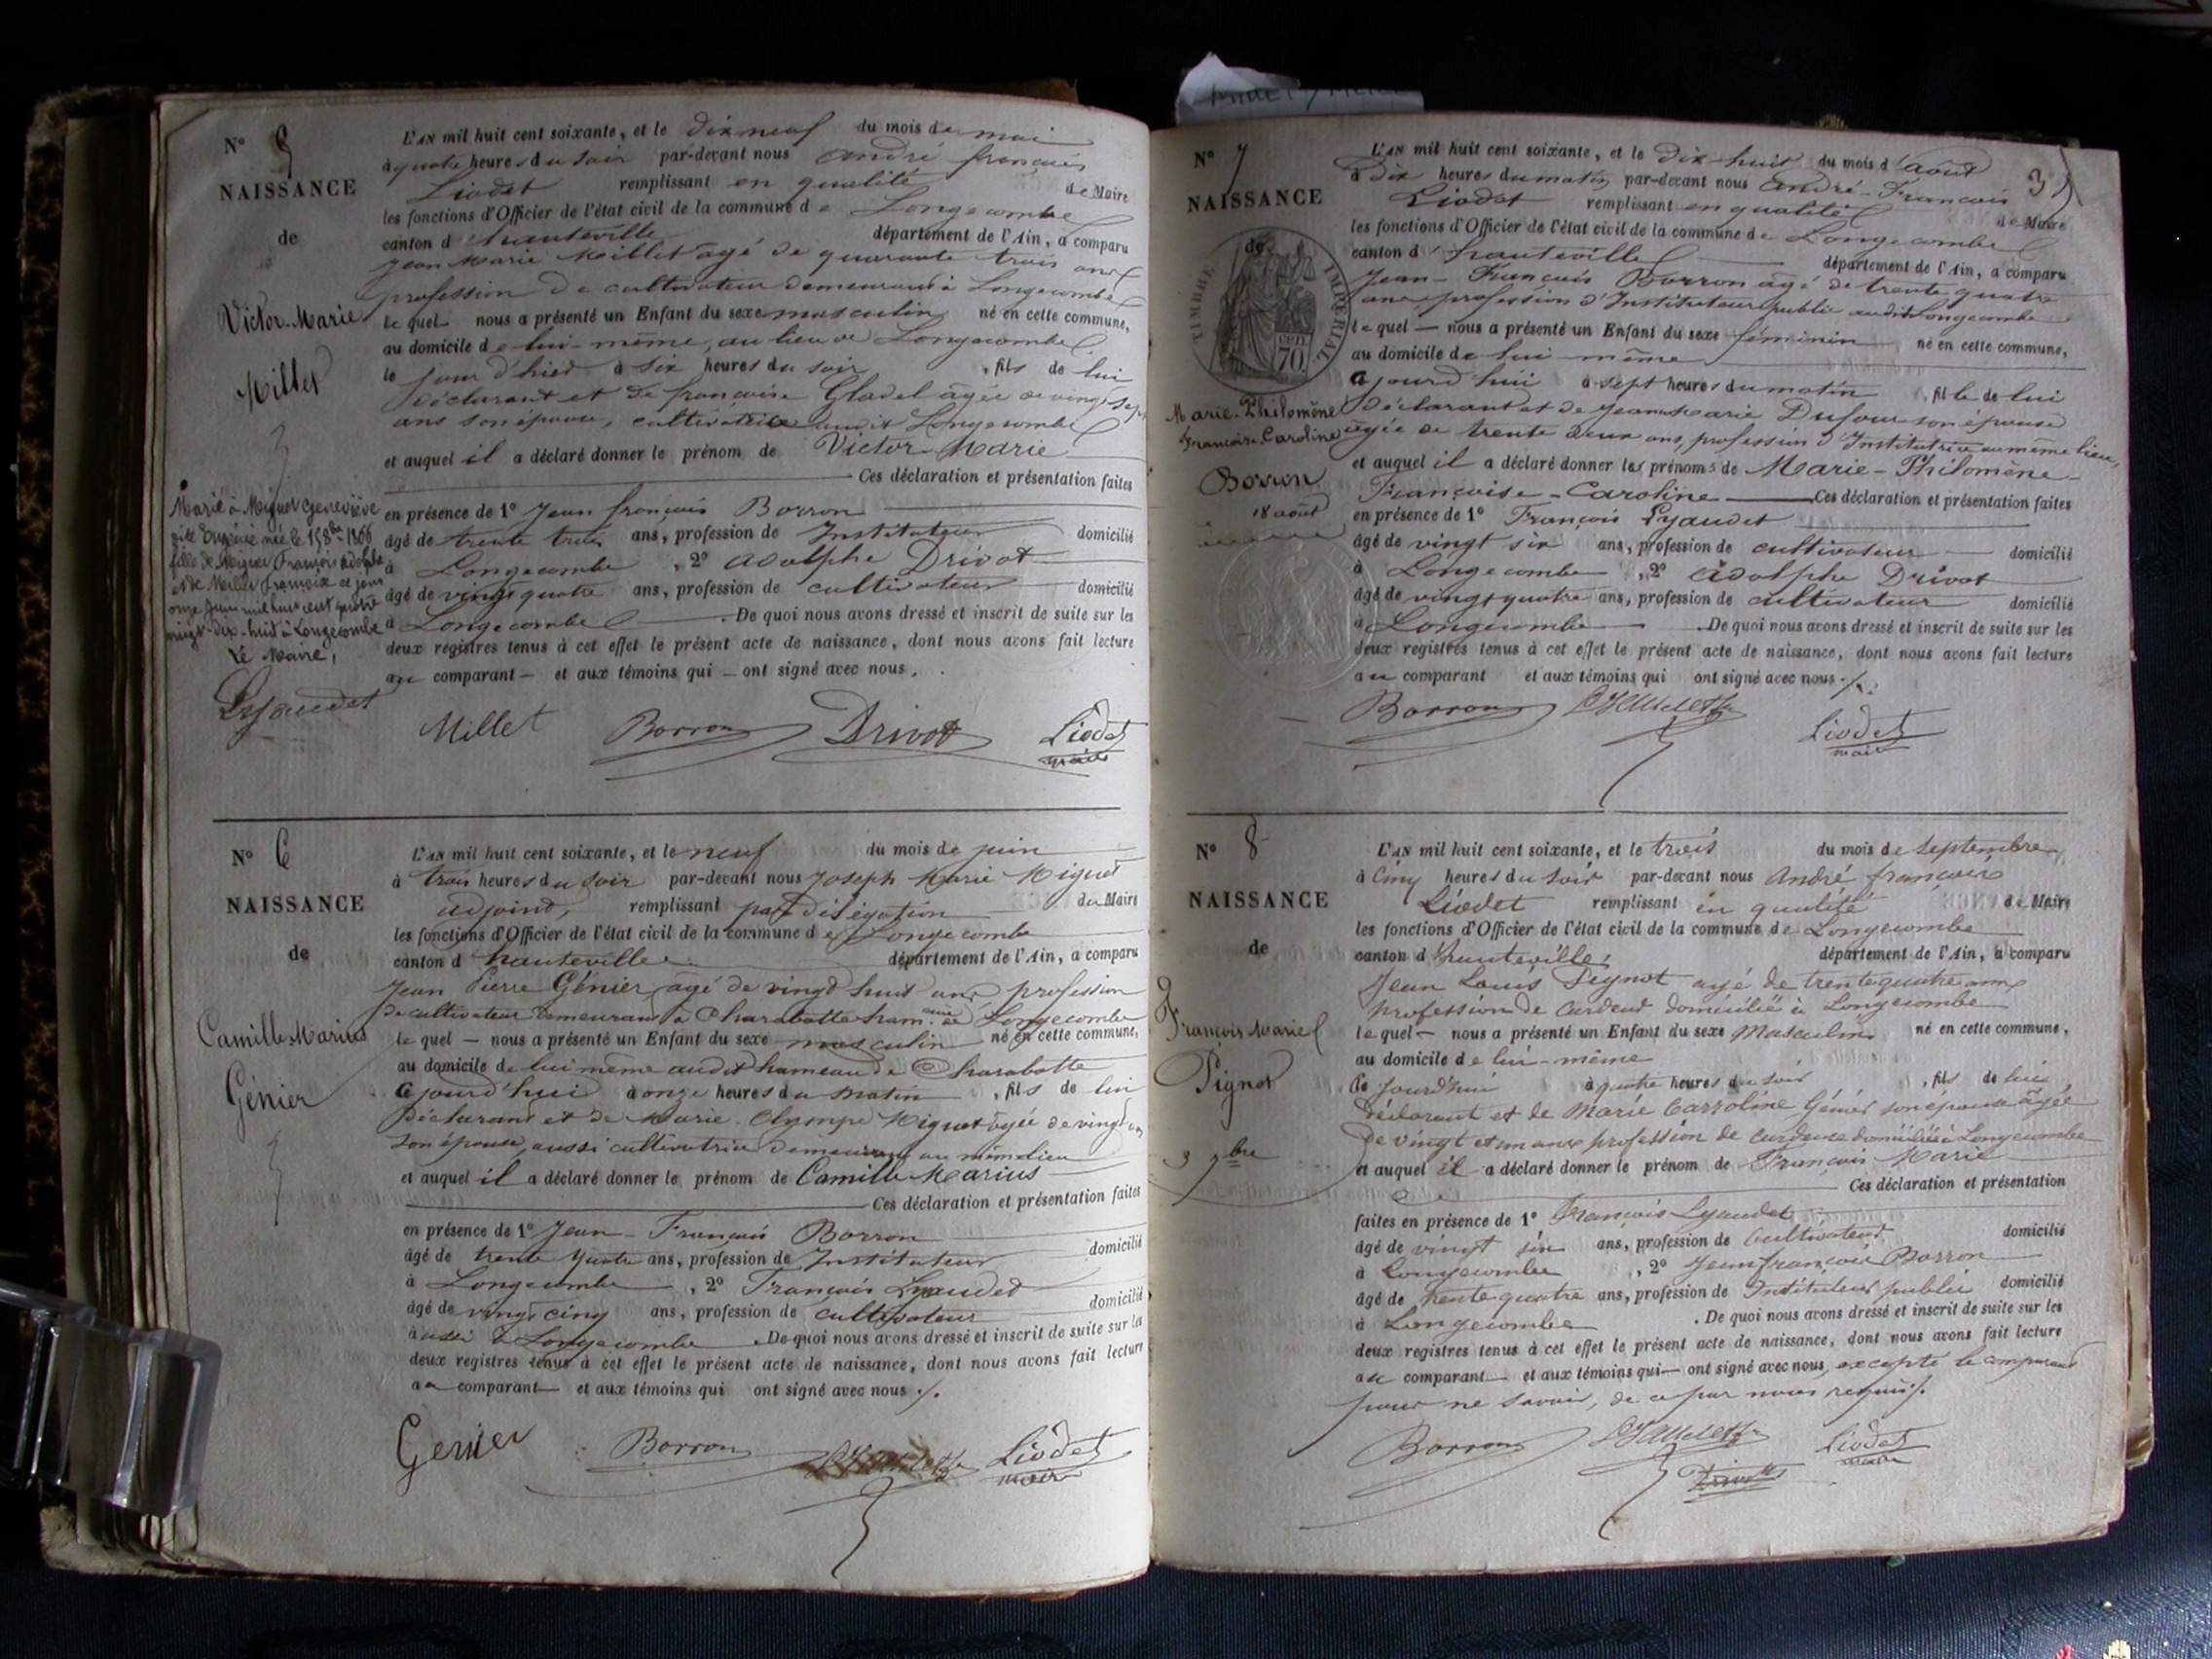 N° 5
NAISSANCE
de
Victor-Marie
Millet
Marié à Miguet Geneviève
dite Eugénie née le 15 8bre 1866
fille de Miguet François Adolphe
et de Millet Françoise ce jour
onze Juin mil huit cent quatre
vingt-dix-huit à Longecombe
Le Maire,
Lyaudet
L'AN mil huit cent soixante, et le dix neuf du mois de mai
à quatre heures du soir par-devant nous andré françois
Liodet remplissant en qualité de Maire
les fonctions d'Officier de l'état civil de la commune de Longecombe
canton d'hauteville département de l'Ain, a comparu
Jean Marie Millet âgé de quarante trois ans
profession de cultivateur demeurant à Longecombe
lequel nous a présenté un Enfant du sexe masculin né en cette commune,
au domicile de lui-même, au lieu de Longecombe
le jour d'hier à six heures du soir, fils de lui
déclarant et de françoise Gladel âgée de vingt sept
ans son épouse, cultivatrice audit Longecombe
et auquel il a déclaré donner le prénom de Victor-Marie
Ces déclaration et présentation faites
en présence de 1° Jean françois Borron
âgé de trente trois ans, profession de Instituteur domicilié
à Longecombe, 2° adolphe Drivot
âgé de vingt quatre ans, profession de cultivateur domicilié
à Longecombe. De quoi nous avons dressé et inscrit de suite sur les
deux registres tenus à cet effet le présent acte de naissance, dont nous avons fait lecture
au comparant et aux témoins qui ont signé avec nous.
Millet Borron Drivot Liodet
maire
N° 6
NAISSANCE
de
Camille-Marius
Génier
L'AN mil huit cent soixante, et le neuf du mois de juin
à trois heures du soir par-devant nous Joseph Marie Miguet
adjoint, remplissant par délégation du Maire
les fonctions d'Officier de l'état civil de la commune de Longecombe
canton d'hauteville département de l'Ain, a comparu
Jean Pierre Génier, âgé de vingt huit ans profession
de cultivateur demeurant à Charabotte ham.eau de Longecombe
lequel nous a présenté un Enfant du sexe masculin né en cette commune,
au domicile de lui même audit hameau de Charabotte
cejourd'hui à onze heures du matin, fils de lui
déclarant et de Marie-Olympe Miguet âgée de vingt ans
son épouse, aussi cultivatrice demeurant au même lieu
et auquel il a déclaré donner le prénom de Camille-Marius
Ces déclaration et présentation faites
en présence de 1° Jean-François Borron
âgé de trente quatre ans, profession de Instituteur domicilié
à Longecombe, 2° François Lyaudet
âgé de vingt cinq ans, profession de cultivateur domicilié
aussi à Longecombe. De quoi nous avons dressé et inscrit de suite sur les
deux registres tenus à cet effet le présent acte de naissance, dont nous avons fait lecture
au comparant et aux témoins qui ont signé avec nous ./.
Genier Borron Liodet
maire
N° 7
NAISSANCE
de
TIMBRE IMPÉRIAL
70 cen
Marie-Philomène
Françoise-Caroline
Borron
18 août
31
L'AN mil huit cent soixante, et le dix-huit du mois d'août
à dix heures du matin par-devant nous André-François
Liodet remplissant en qualité de Maire
les fonctions d'Officier de l'état civil de la commune de Longecombe
canton d'hauteville département de l'Ain, a comparu
Jean-François Borron âgé de trente quatre
ans profession d'Instituteur public audit Longecombe
lequel nous a présenté un Enfant du sexe féminin né en cette commune,
au domicile de lui-même
ajourd'hui à sept heures du matin, fille de lui
déclarant et de Jeanne-Marie Dufour son épouse
âgée de trente deux ans, profession d'Institutrice au même lieu,
et auquel il a déclaré donner les prénoms de Marie-Philomène-
Françoise-Caroline Ces déclaration et présentation faites
en présence de 1° François Lyaudet
âgé de vingt six ans, profession de cultivateur domicilié
à Longecombe, 2° adolphe Drivot
âgé de vingt quatre ans, profession de cultivateur domicilié
à Longecombe. De quoi nous avons dressé et inscrit de suite sur les
deux registres tenus à cet effet le présent acte de naissance, dont nous avons fait lecture
au comparant et aux témoins qui ont signé avec nous ./.
Borron Liodet
maire
N° 8
NAISSANCE
de
François Marie
Pignot
3 7bre
L'AN mil huit cent soixante, et le trois du mois de septembre
à cinq heures du soir par-devant nous André françois
Liodet remplissant en qualité de Maire
les fonctions d'Officier de l'état civil de la commune de Longecombe
canton d'hauteville, département de l'Ain, a comparu
Jean Louis Pignot âgé de trente quatre ans
profession de cardeur domicilié à Longecombe
lequel nous a présenté un Enfant du sexe Masculin né en cette commune,
au domicile de lui-même
ce jourd'hui à quatre heures du soir, fils de lui
déclarant et de Marie Carroline Génier son épouse âgée
de vingt et un ans profession de cardeuse domiciliée à Longecombe
et auquel il a déclaré donner le prénom de François Marie
Ces déclaration et présentation
faites en présence de 1° François Lyaudet
âgé de vingt six ans, profession de Cultivateur domicilié
à Longecombe, 2° Jean françois Borron
âgé de trente quatre ans, profession de Instituteur public domicilié
à Longecombe. De quoi nous avons dressé et inscrit de suite sur les
deux registres tenus à cet effet le présent acte de naissance, dont nous avons fait lecture
au comparant et aux témoins qui ont signé avec nous, excepté le comparant
pour ne savoir, de ce par nous requis ./.
Borron Liodet
maire